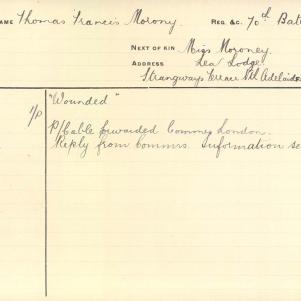 NAME Thomas Francis Morony. REG. &C. 70th Bat
NEXT OF KIN Miss Moroney.
ADDRESS Lea Lodge.
Strangways Terrace Nth Adelaide
"Wounded"
P/Cable forwarded Commrs London.
Reply from Commrs. Information se